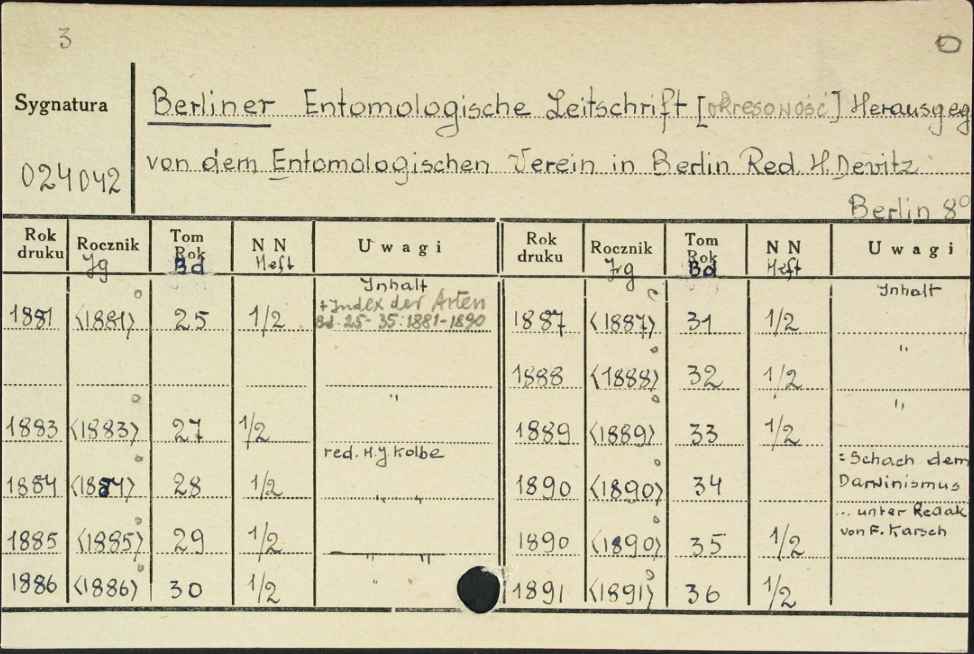 3
Sygnatura
024042
Berliner Entomologische Zeitschrift [okresoność] Herausgeg
von dem Entomologischen Verein in Berlin Red. H. Devitz
Berlin 8°
Rok druku Rocznik Jg Tom Rok Bd N N Heft Uwagi
Inhalt
1881 <1881> 25 1/2 + Index der Arten
Bd. 25-35: 1881-1890
"
1883 <1883> 27 1/2
red. H.J. Kolbe
1884 <1884> 28 1/2 " "
1885 <1885> 29 1/2 " "
1886 <1886> 30 1/2 "
Rok druku Rocznik Jrg Tom Rok Bd N N Heft Uwagi
Inhalt
1887 <1887> 31 1/2
"
1888 <1888> 32 1/2
"
1889 <1889> 33 1/2
: Schach dem
1890 <1890> 34 Darwinismus
... unter Redak
1890 <1890> 35 1/2 von F. Karsch
1891 <1891> 36 1/2